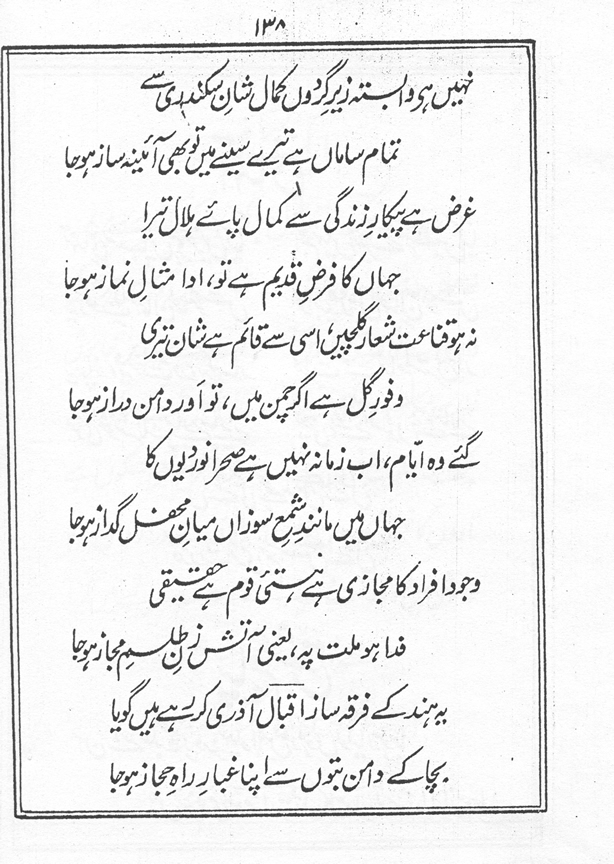 ۱۳۸
نہیں ہے وابستہ زیرِ گردوں کمال شانِ سکندری سے
تمام ساماں ہے تیرے سینے میں تو بھی آئینہ ساز ہو جا
غرض ہے پیکارِ زندگی سے کمال پائے ہلال تیرا
جہاں کا فرضِ قدیم ہے تو، ادا مثالِ نماز ہو جا
نہ ہو قناعت شعار گلچیں، اسی سے قائم ہے شان تیری
وفورِ گل ہے اگر چمن میں، تو اَور دامن دراز ہو جا
گئے وہ ایّام، اب زمانہ نہیں ہے صحرانوردیوں کا
جہاں میں مانندِ شمعِ سوزاں میانِ محفل گداز ہو جا
وجود افراد کا مجازی ہے ہستئ قوم ہے حقیقی
فدا ہو ملت پہ، یعنی آتش زنِ طلسمِ مجاز ہو جا
یہ ہند کے فرقہ ساز اقبال آذری کر رہے ہیں گویا
بچا کے دامن بتوں سے اپنا غبارِ راہِ حجاز ہو جا